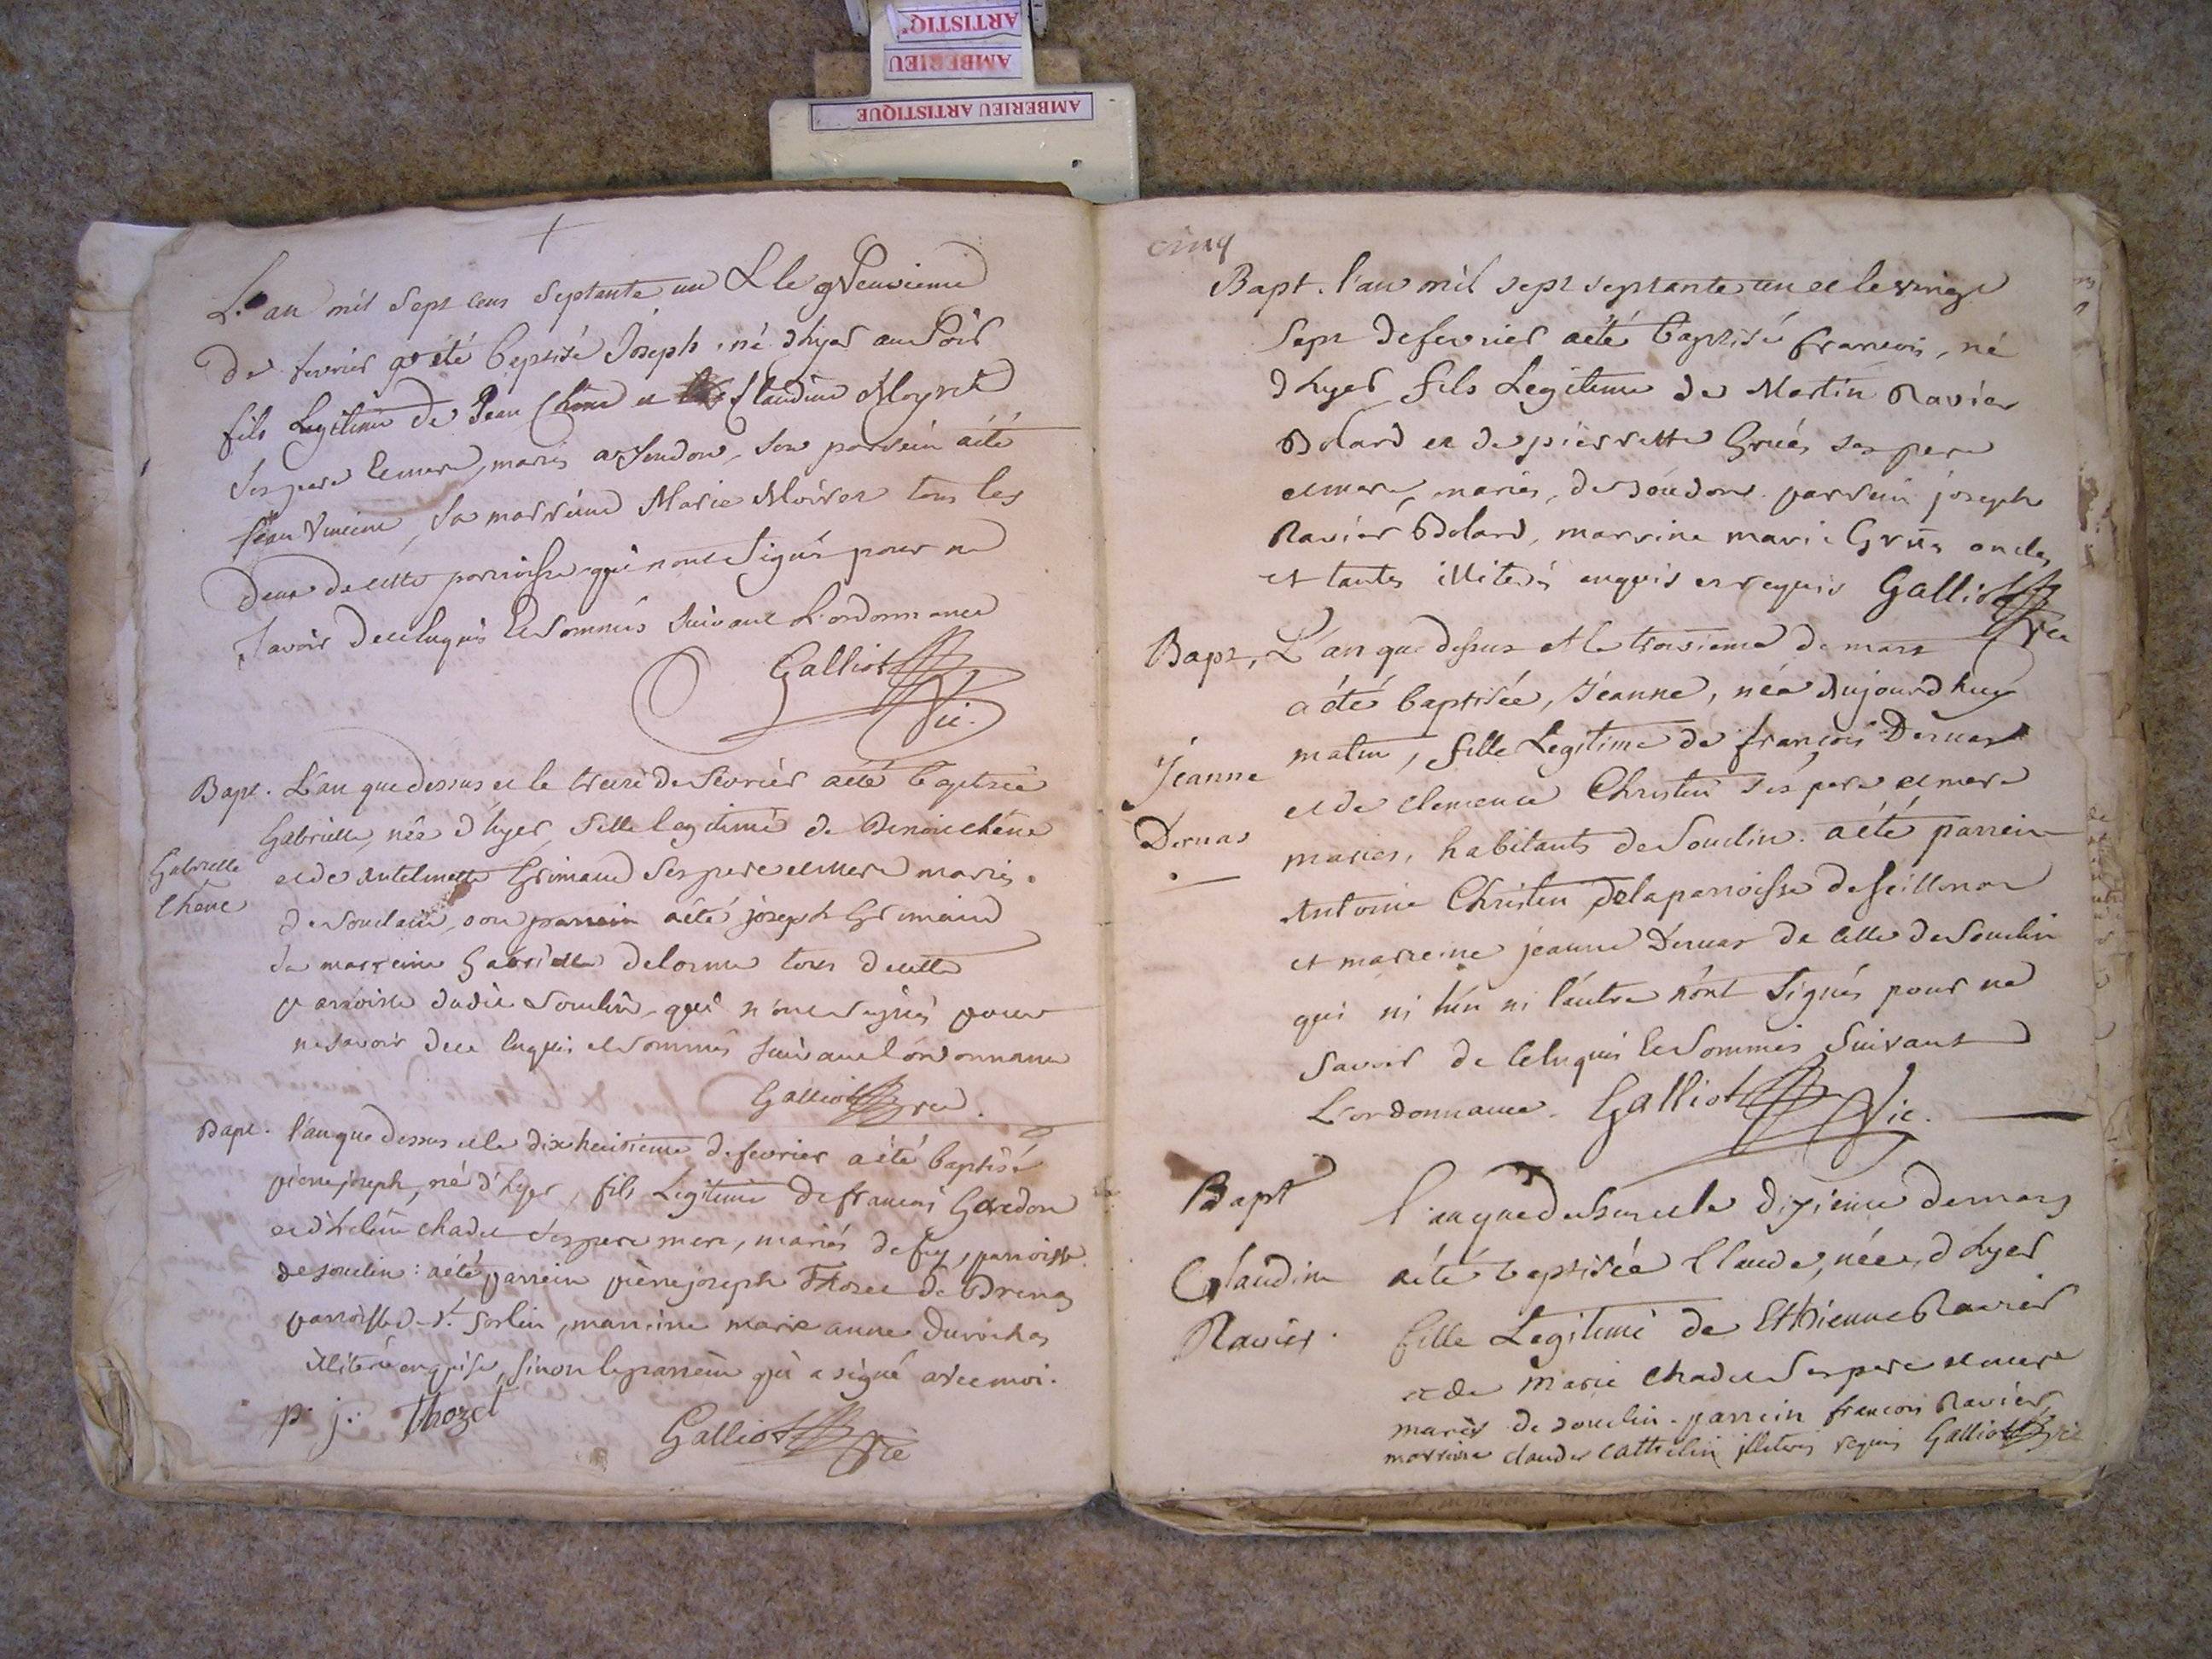 ARTISTIQ
AMBERIEU
AMBERIEU ARTISTIQUE
L'an mil sept cens septante un & le neuvieme
de fevrier a été baptisé Joseph, né d'hyer au soir
fils Legitime de Jean Chêne et Claudine Moyret
ses pere et mere, mariés a Soudon, son parrein a été
Jean Vincent, sa marreine Marie Moiret tous les
deux de cette parroisse qui n'ont signés pour ne
savoir de ce Enquis et Sommés suivant L'ordonnance
Galliot
Vic.
Bapt. L'an que dessus et le treize de fevrier a été baptisée
Gabrielle, née d'hyer, fille legitime de Benoit chêne
Gabrielle
et de antelmette Grimaud ses pere et mere mariés
Chêne
de Souclin, son parrein a été joseph Grimaud
sa marreine Gabrielle delorme tous de cette
parroisse dudit Souclin, qui n'ont signés pour
ne savoir de ce enquis et sommés suivant l'ordonnance
Galliot vic.
Bapt. l'an que dessus et le dix huitieme de fevrier a été baptisé
pierre joseph, né d'hyer, fils Legitime de francois Gardon
et d'helène chadet ses pere mere, mariés de fey, parroisse
de souclin: a été parrein pierre joseph Thozet de Brenaz
parroisse de st. Sorlin, marreine marie anne durochas
illiteré enquise, sinon le parrein qui a signé avec moi.
p. j. Thozet
Galliot Vic
cinq
Bapt. l'an mil sept septante un et le vingt
sept de fevrier a été baptisé francois, né
d'hyer fils Legitime de Martin Ravier
Bolard et de pierrette Gruès ses pere
et mere, mariés, de soudon. parrein joseph
Ravier Bolard, marreine marie Gruès oncle
et tante illiterés enquis et requis Galliot
vic
Bapt, L'an que dessus et le troisieme de mars
a été baptisée, Jeanne, née Aujourdhuy
matin, fille Legitime de françois Dernas
Jeanne
et de clemence Christin ses pere et mere
Dernas
mariés, habitants de Souclin. a été parrein
Antoine Christin de la parroisse de seillonas
et marreine jeanne Dernas de celle de Souclin
qui ni l'un ni l'autre n'ont signés pour ne
savoir de ce Enquis et Sommés suivant
L'ordonnance. Galliot Vic.
Bapt
l'an que dessus et le dixieme de mars
Claudine
a été baptisée Claude, née d'hyer
Ravier.
fille Legitime de Ethienne Ravier
et de marie chadet ses pere et mere
mariés de souclin. parrein francois Ravier
marreine claude cattelin illiterés requis Galliot vic